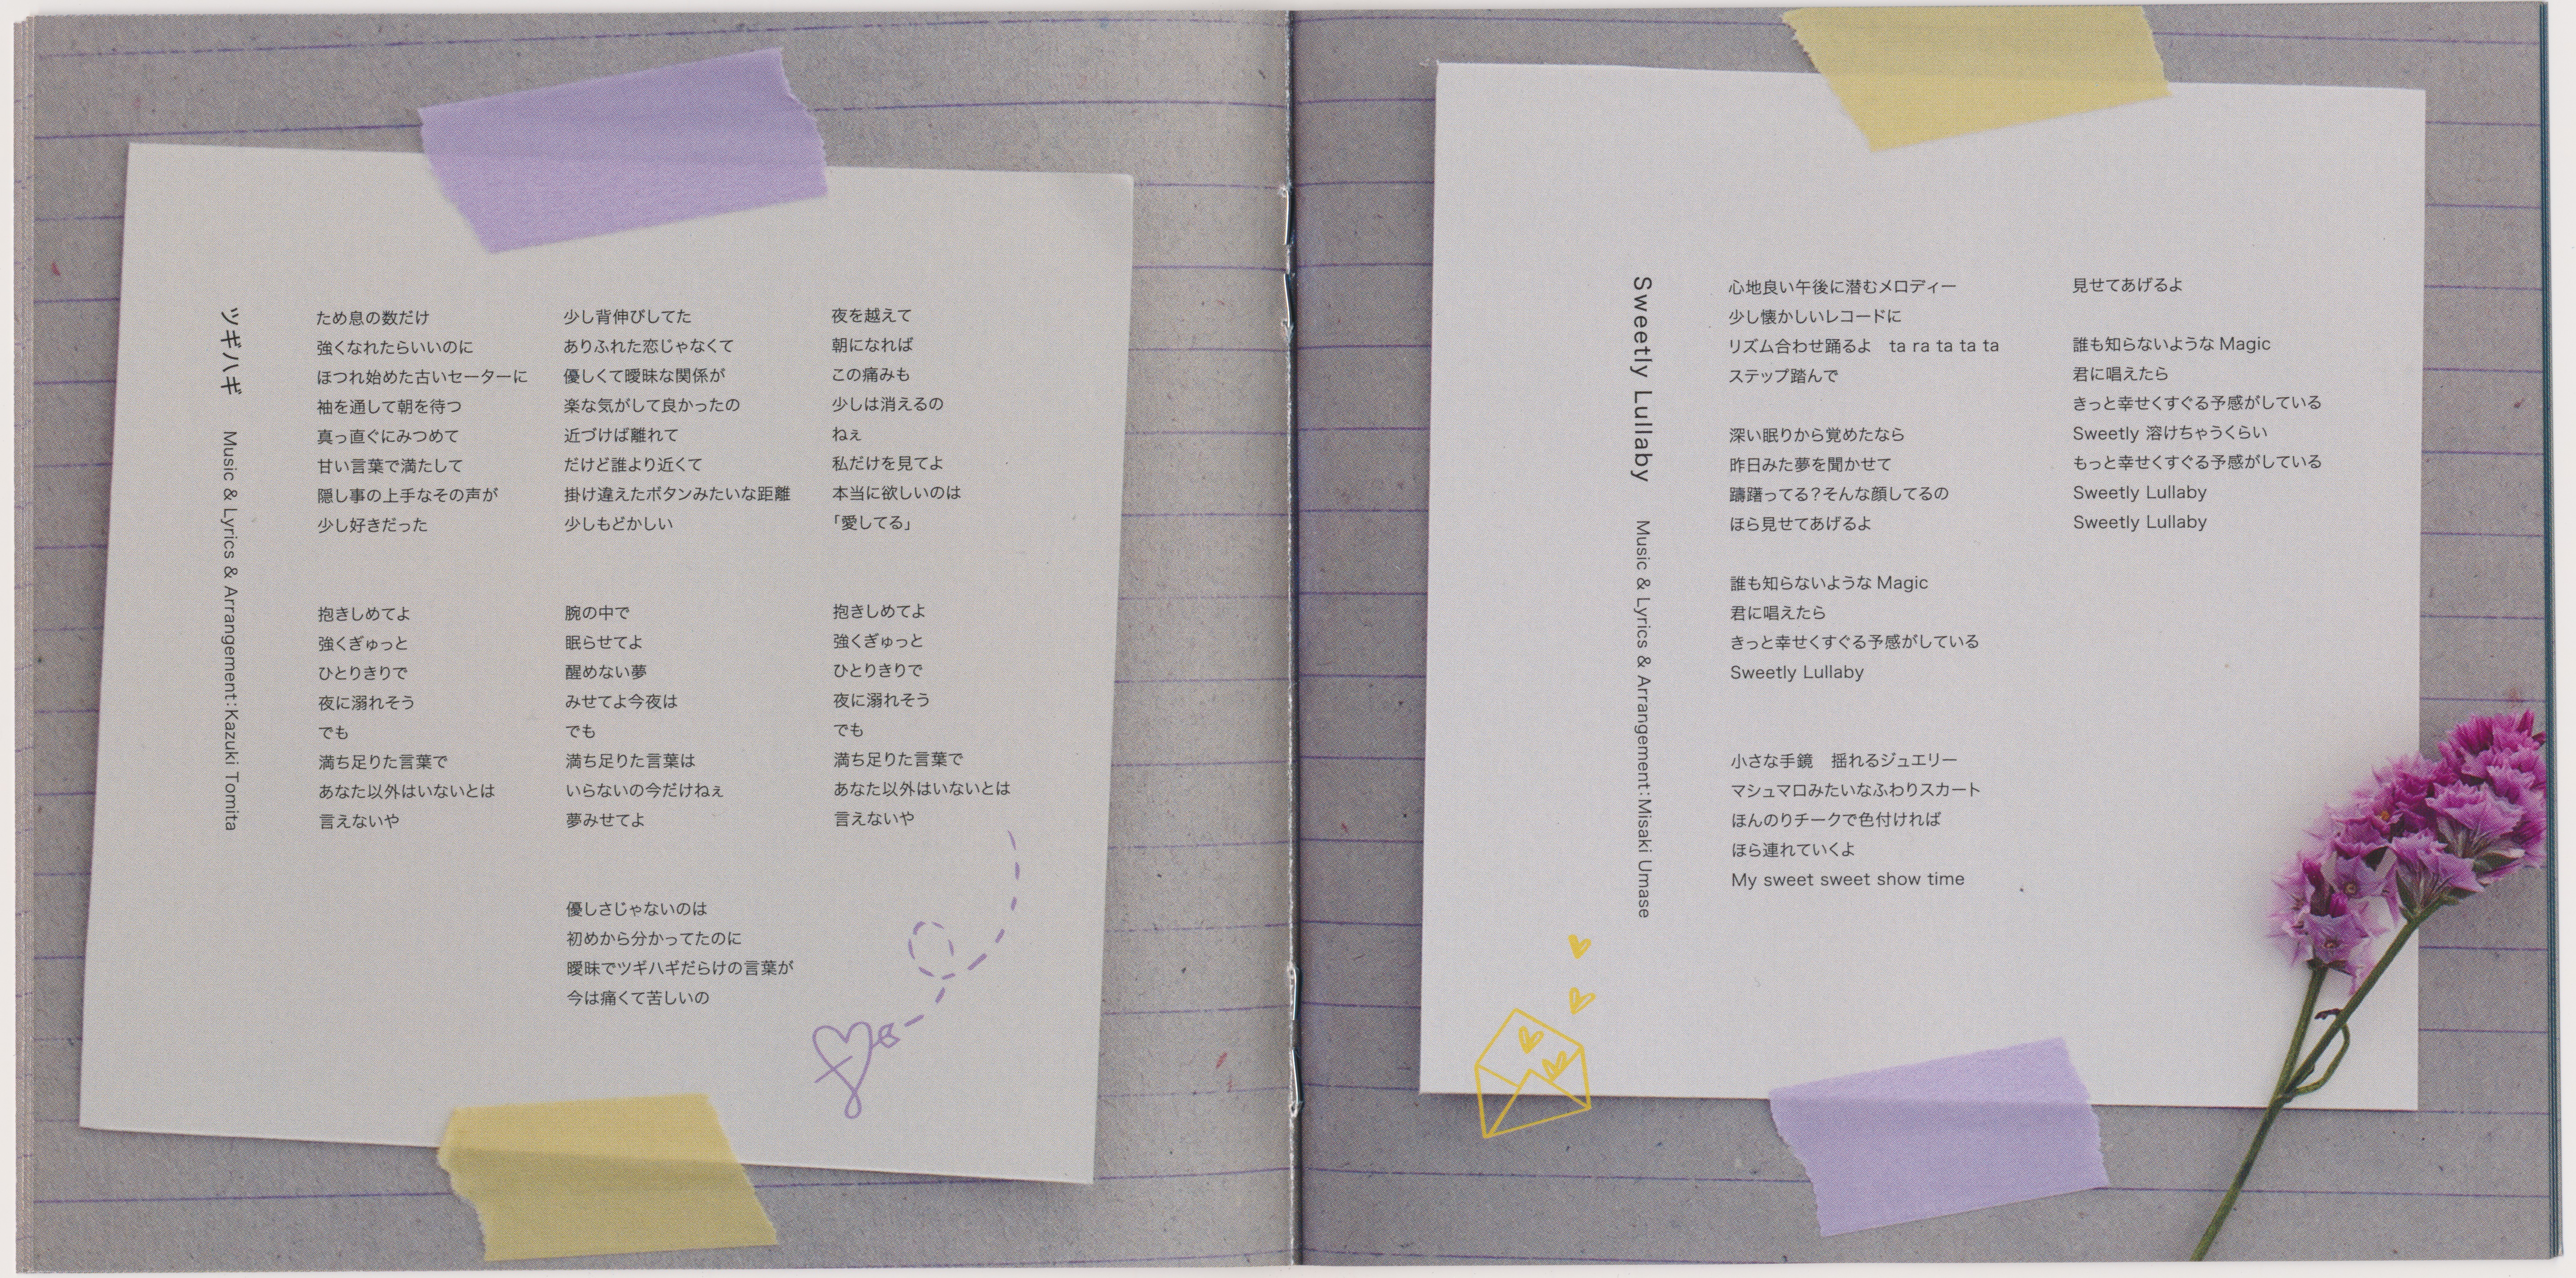 ツギハギ　Music & Lyrics & Arrangement:Kazuki Tomita
ため息の数だけ
強くなれたらいいのに
ほつれ始めた古いセーターに
袖を通して朝を待つ
真っ直ぐにみつめて
甘い言葉で満たして
隠し事の上手なその声が
少し好きだった
抱きしめてよ
強くぎゅっと
ひとりきりで
夜に溺れそう
でも
満ち足りた言葉で
あなた以外はいないとは
言えないや
少し背伸びしてた
ありふれた恋じゃなくて
優しくて曖昧な関係が
楽な気がして良かったの
近づけば離れて
だけど誰より近くて
掛け違えたボタンみたいな距離
少しもどかしい
腕の中で
眠らせてよ
醒めない夢
みせてよ今夜は
でも
満ち足りた言葉は
いらないの今だけねぇ
夢みせてよ
優しさじゃないのは
初めから分かってたのに
曖昧でツギハギだらけの言葉が
今は痛くて苦しいの
夜を越えて
朝になれば
この痛みも
少しは消えるの
ねぇ
私だけを見てよ
本当に欲しいのは
「愛してる」
抱きしめてよ
強くぎゅっと
ひとりきりで
夜に溺れそう
でも
満ち足りた言葉で
あなた以外はいないとは
言えないや
Sweetly Lullaby　Music & Lyrics & Arrangement:Misaki Umase
心地良い午後に潜むメロディー
少し懐かしいレコードに
リズム合わせ踊るよ　ta ra ta ta ta
ステップ踏んで
深い眠りから覚めたなら
昨日みた夢を聞かせて
躊躇ってる?そんな顔してるの
ほら見せてあげるよ
誰も知らないような Magic
君に唱えたら
きっと幸せくすぐる予感がしている
Sweetly Lullaby
小さな手鏡　揺れるジュエリー
マシュマロみたいなふわりスカート
ほんのりチークで色付ければ
ほら連れていくよ
My sweet sweet show time
見せてあげるよ
誰も知らないような Magic
君に唱えたら
きっと幸せくすぐる予感がしている
Sweetly 溶けちゃうくらい
もっと幸せくすぐる予感がしている
Sweetly Lullaby
Sweetly Lullaby